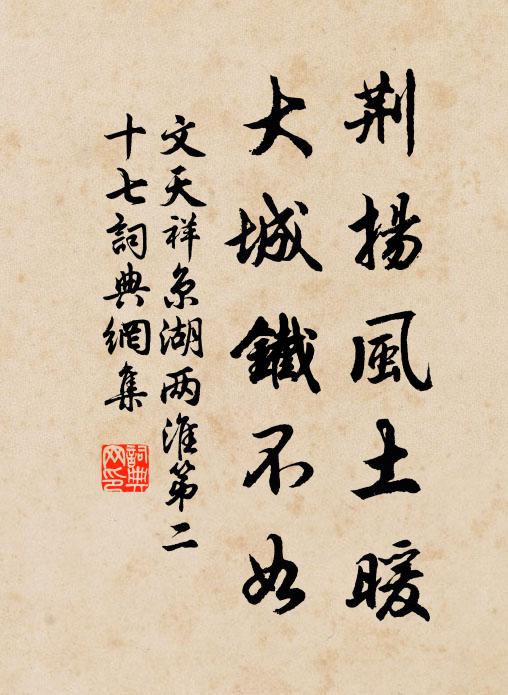 荆揚風土暖
大城鐵不如
文天祥京湖两淮第二
十七詞典網集
詞典
网印